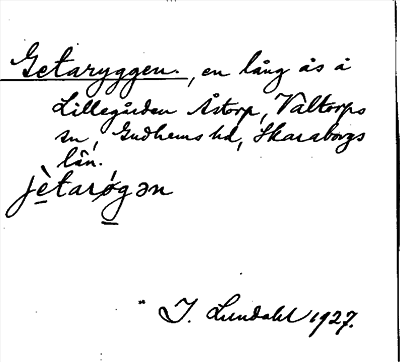 Getaryggen, en lång ås å
Lillegården Åstorp, Valtorps
sn, Gudhems hd, Skaraborgs
län.
jètarǿgən
I. Lundahl 1927.